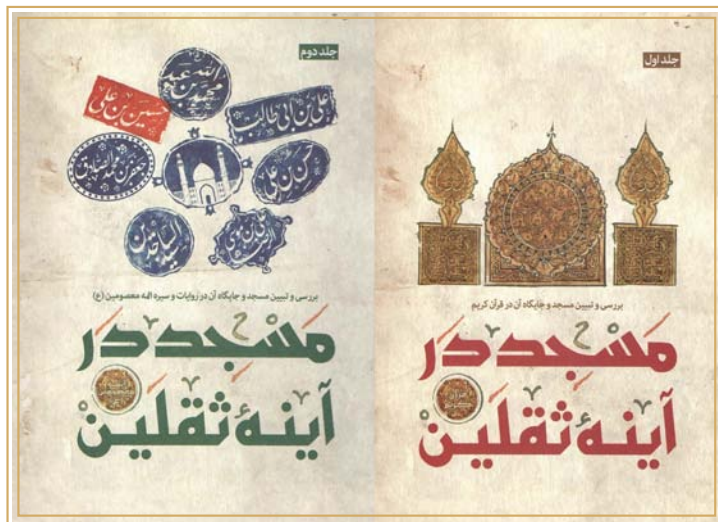 جلد اول
بررسی و تبیین مسجد و جایگاه آن در قرآن کریم
مسجد در
آینهٔ ثقلین
جلد دوم
محمد بن عبدالله
علی بن ابی طالب
حسین بن علی
حسن بن علی
جعفر بن محمد الصادق
علی بن موسی الرضا
سید الساجدین
بررسی و تبیین مسجد و جایگاه آن در روایات و سیره ائمه معصومین (ع)
مسجد در
آینهٔ ثقلین